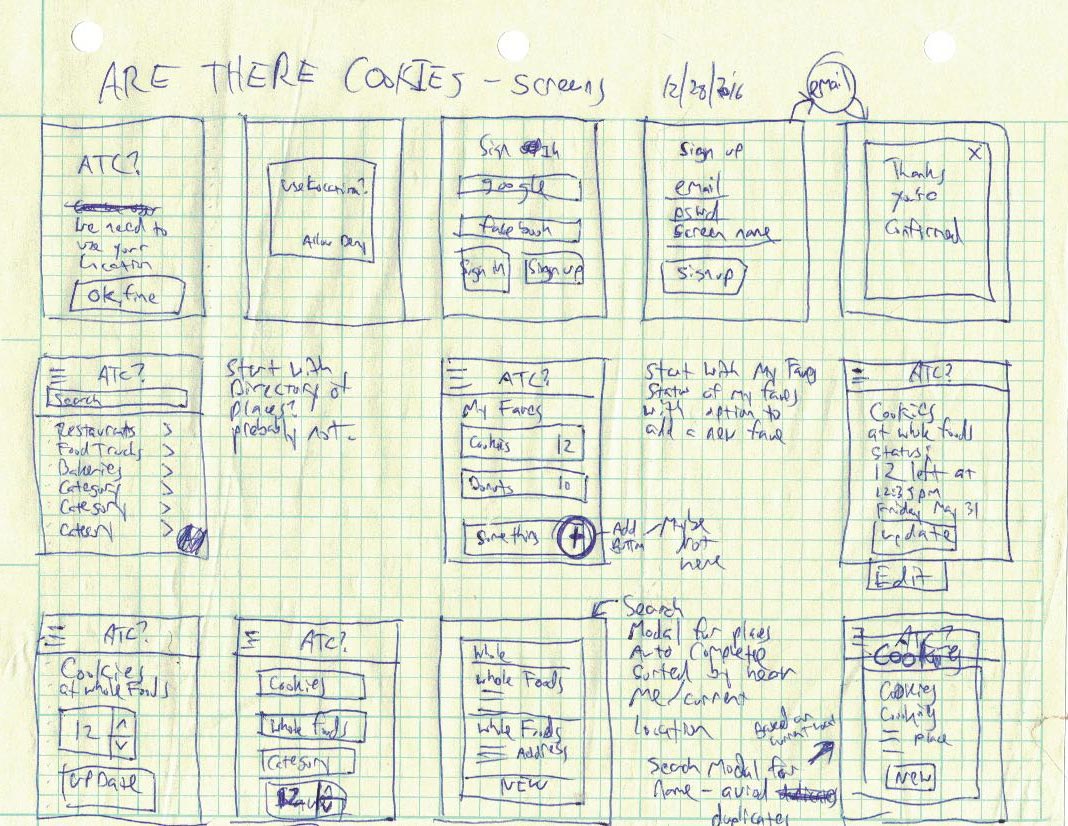 ARE THERE COOKIES - screens 12/28/2016
email
ATC?
we need to
use your
location
ok, fine
use Location?
Allow Deny
Sign In
google
facebook
Sign in
Sign up
Sign up
email
pswd
screen name
signup
X
Thanks
you're
Confirmed
ATC?
Search
Restaurants >
Food Trucks >
Bakeries >
Category >
Category >
Category >
Start with
Directory of
places?
probably not.
ATC?
My Faves
Cookies 12
Donuts 10
Something +
Add
Button
Maybe
not
here
Start with My Faves
Status of my faves
with option to
add a new fave
ATC?
Cookies
at whole foods
status:
12 left at
12:35pm
Friday May 31
update
Edit
ATC?
Cookies
at whole Foods
12
upDate
ATC?
Cookies
Whole foods
Category
12
Whole
whole Foods
whole Foods
Address
NEW
Search
Modal for places
Auto Complete
Sorted by near
Me/current
Location
Based on
Search Modal for
name - aviod
duplicates
ATC?
Cookies
Cookies
Cookies
place
New